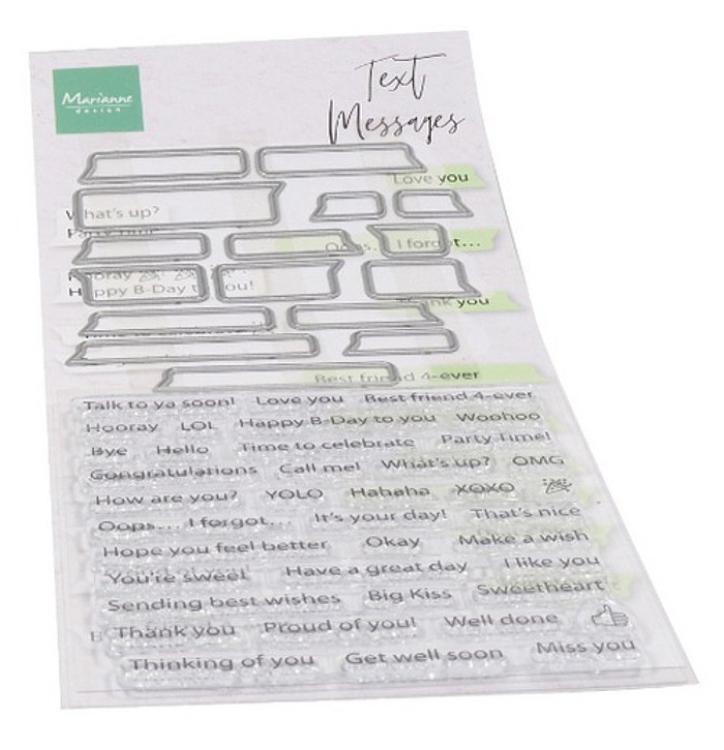 Marianne
design
Text
Messages
Love you
What's up?
Party Time!
Oops... I forgot...
Hooray
Happy B-Day to you!
Thank you
Time to celebrate
Best friend 4-ever
Talk to ya soon! Love you Best friend 4-ever
Hooray LOL Happy B-Day to you Woohoo
Bye Hello Time to celebrate Party Time!
Congratulations Call me! What's up? OMG
How are you? YOLO Hahaha XOXO
Oops... I forgot... It's your day! That's nice
Hope you feel better Okay Make a wish
You're sweet Have a great day I like you
Sending best wishes Big Kiss Sweetheart
Thank you Proud of you! Well done
Thinking of you Get well soon Miss you